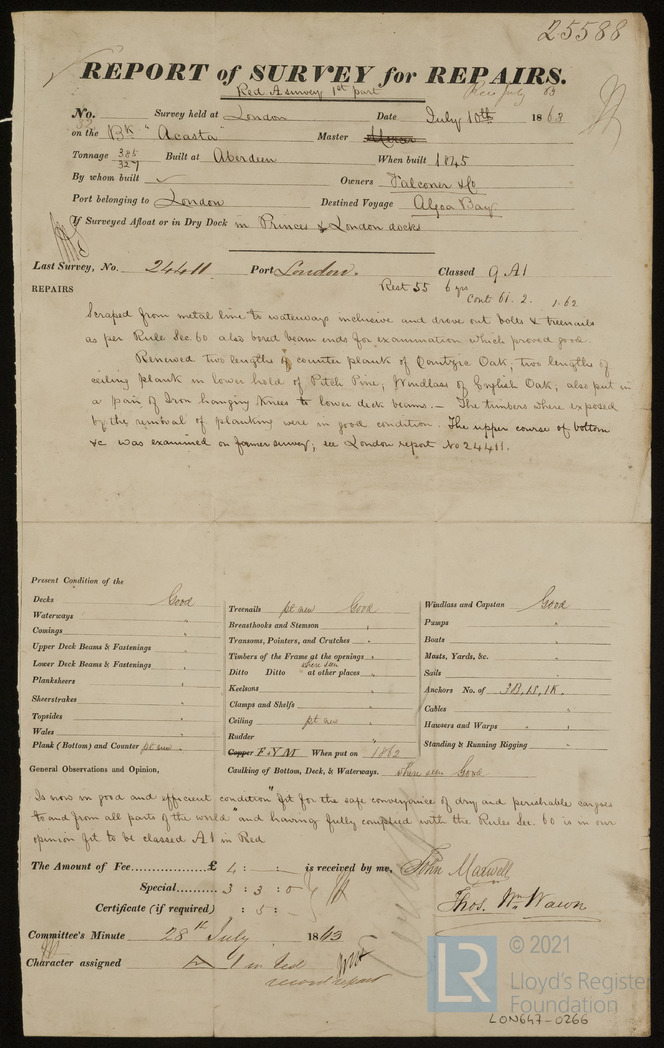 25588
REPORT of SURVEY for REPAIRS.
Red A survey 1st part
Rec July 63
No. Survey held at London Date July 10th 1863
on the Bk "Acasta" Master Mercer
Tonnage 385 Built at Aberdeen When built 1845
327
By whom built Owners Falconer & Co
Port belonging to London Destined Voyage Algoa Bay
If Surveyed Afloat or in Dry Dock in Princes & London docks
Last Survey, No. 24411 Port London. Classed 9 A1
REPAIRS Rest 55 6 yrs
Cont 61. 2. 1.62
Scraped from metal line to waterways inclusive and drove out bolts & treenails
as per Rule Sec. 60 also bored beam ends for examination which proved good.
Renewed two lengths of counter plank of Oak; two lengths of
ceiling plank in lower hold of Pitch Pine; Windlass of English Oak; also put in
a pair of Iron hanging Knees to lower deck beams. — The timbers where exposed
by the removal of planking were in good condition. The upper course of bottom
&c was examined on former survey; see London report No 24411.
Present Condition of the
Decks Good
Waterways "
Comings "
Upper Deck Beams & Fastenings "
Lower Deck Beams & Fastenings "
Planksheers "
Sheerstrakes "
Topsides "
Wales "
Plank (Bottom) and Counter pt new "
Treenails pt new Good
Breasthooks and Stemson "
Transoms, Pointers, and Crutches "
Timbers of the Frame at the openings "
where seen
Ditto Ditto at other places "
Keelsons "
Clamps and Shelfs "
Ceiling pt new "
Rudder "
Copper F & YM When put on 1862
Caulking of Bottom, Deck, & Waterways. where seen Good
Windlass and Capstan Good
Pumps "
Boats "
Masts, Yards, &c. "
Sails "
Anchors No. of 3B, 1S, 1K.
Cables "
Hawsers and Warps "
Standing & Running Rigging "
General Observations and Opinion,
Is now in good and efficient condition "fit for the safe conveyance of dry and perishable cargoes
to and from all parts of the world" and having fully complied with the Rules Sec. 60 is in our
opinion fit to be classed A1 in Red
The Amount of Fee £ 4 : - : - is received by me, John Maxwell
Special 3 : 3 : 0
Thos. Wm Wawn
Certificate (if required) : 5 : -
Committee's Minute 28th July 1863
Character assigned A 1 in Red
record repair
LR © 2021
Lloyd's Register
Foundation
LON647-0266